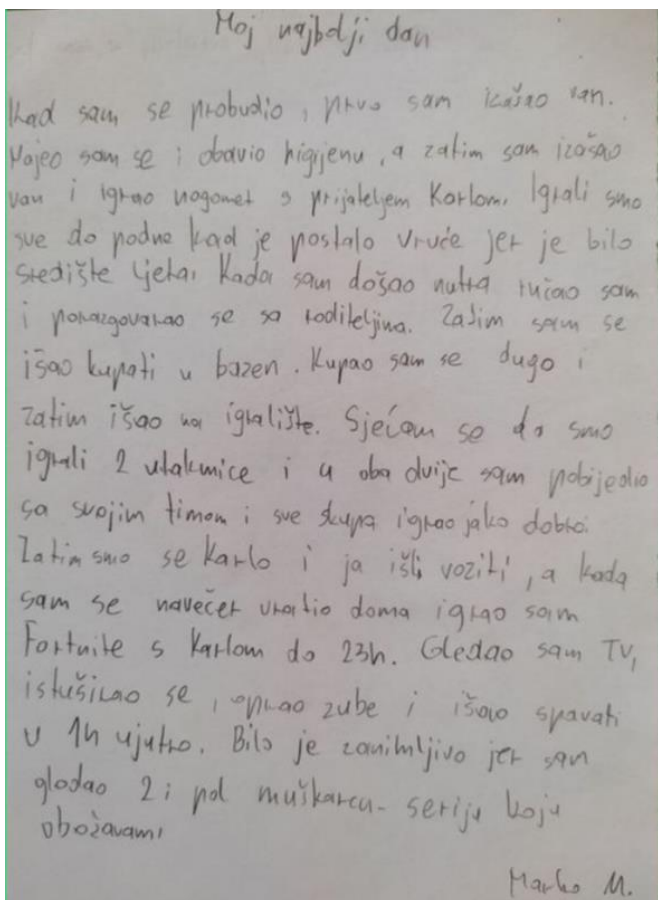 Moj najbolji dan
Kad sam se probudio, prvo sam izašao van.
Najeo sam se i obavio higijenu, a zatim sam izašao
van i igrao nogomet s prijateljem Karlom. Igrali smo
sve do podne kad je postalo vruće jer je bilo
središte ljeta. Kada sam došao nutra ručao sam
i porazgovarao se sa roditeljima. Zatim sam se
išao kupati u bazen. Kupao sam se dugo i
zatim išao na igralište. Sjećam se da smo
igrali 2 utakmice i u oba dvije sam pobijedio
sa svojim timom i sve skupa igrao jako dobro.
Zatim smo se Karlo i ja išli voziti, a kada
sam se navečer vratio doma igrao sam
Fortnite s Karlom do 23h. Gledao sam TV,
istuširao se, oprao zube i išao spavati
u 1h ujutro. Bilo je zanimljivo jer sam
gledao 2 i pol muškarca - seriju koju
obožavam.
Marko M.